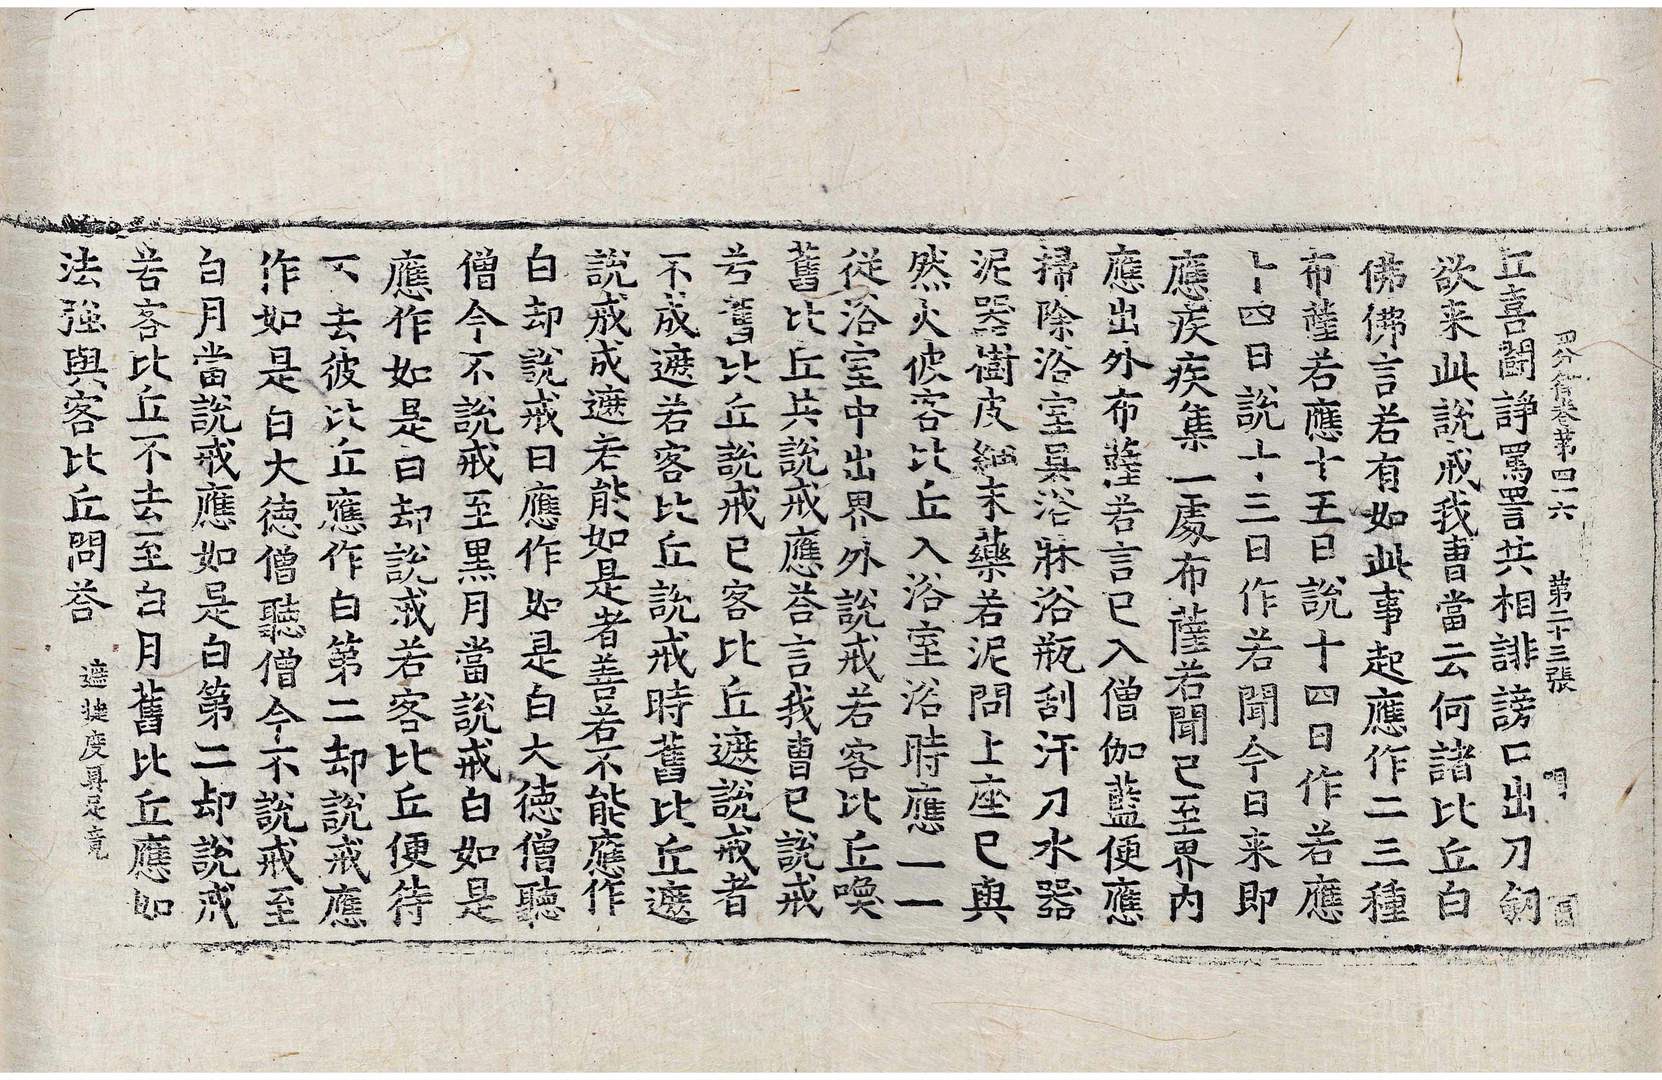 四分律卷第四十六 第二十三張
丘喜鬪諍罵詈共相誹謗口出刀劒
欲来此說戒我曹當云何諸比丘白
佛佛言若有如此事起應作二三種
布薩若應十五日說十四日作若應
十四日說十三日作若聞今日来即
應疾疾集一處布薩若聞已至界内
應出外布薩若言已入僧伽藍便應
掃除浴室具浴牀浴瓶刮汗刀水器
泥器樹皮細末藥若泥問上座已與
然火彼客比丘入浴室浴時應一一
從浴室中出界外說戒若客比丘喚
舊比丘共說戒應荅言我曹已說戒
若舊比丘說戒已客比丘遮說戒者
不成遮若客比丘說戒時舊比丘遮
說戒成遮若能如是者善若不能應作
白却說戒日應作如是白大徳僧聽
僧今不說戒至黒月當說戒白如是
應作如是白却說戒若客比丘便待
不去彼比丘應作白第二却說戒應
作如是白大徳僧聽僧今不說戒至
白月當說戒應如是白第二却說戒
若客比丘不去至白月舊比丘應如
法強與客比丘問荅 遮揵度具足竟